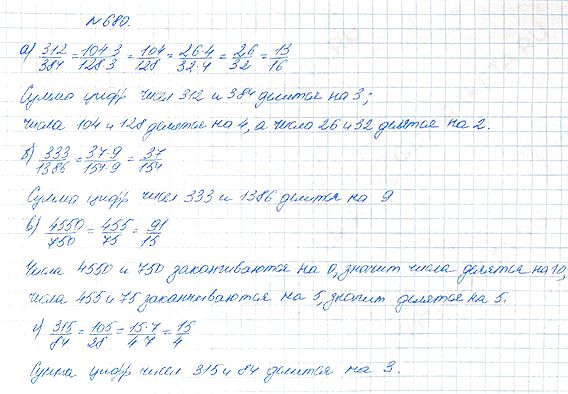 №680.
а) 312/384 = 104·3/128·3 = 104/128 = 26·4/32·4 = 26/32 = 13/16
Сумма цифр чисел 312 и 384 делится на 3;
числа 104 и 128 делятся на 4, а числа 26 и 32 делятся на 2.
б) 333/1386 = 37·9/154·9 = 37/154
Сумма цифр чисел 333 и 1386 делится на 9
в) 4550/750 = 455/75 = 91/15
Числа 4550 и 750 заканчиваются на 0, значит числа делятся на 10,
числа 455 и 75 заканчиваются на 5, значит делятся на 5.
г) 315/84 = 105/28 = 15·7/4·7 = 15/4
Сумма цифр чисел 315 и 84 делится на 3.